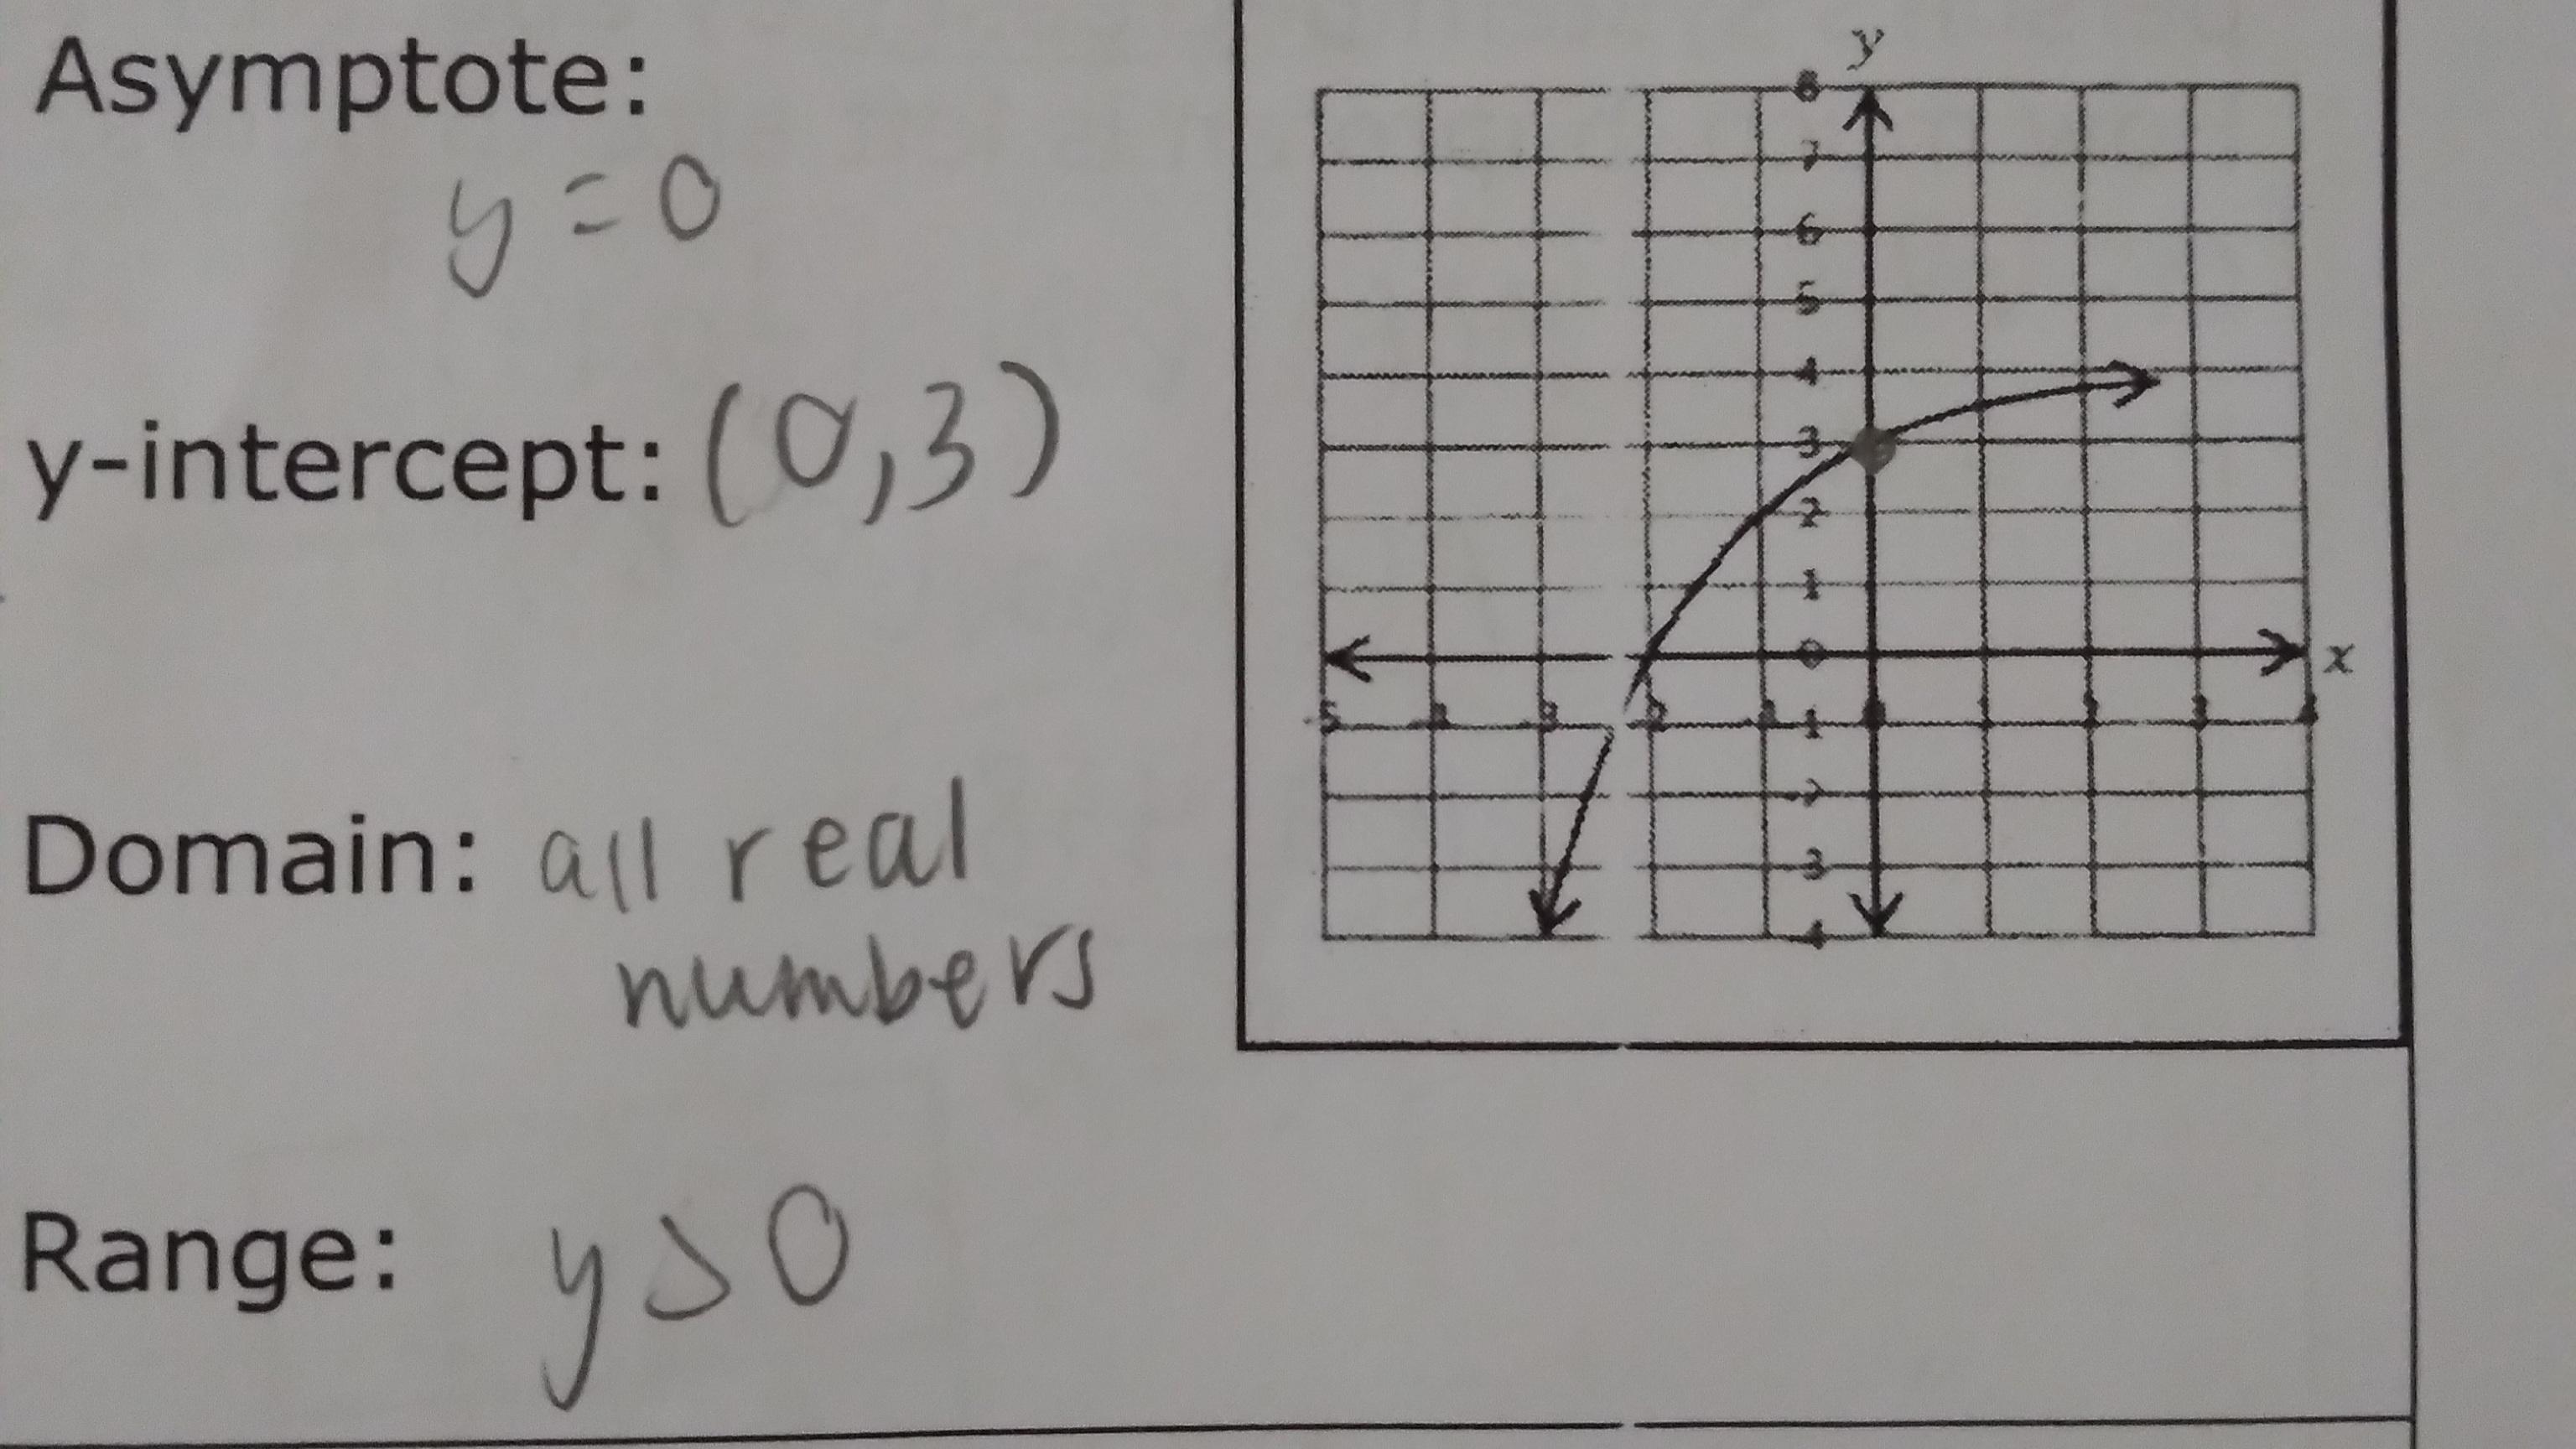 Asymptote:
y = 0
y-intercept: (0,3)
Domain: all real
numbers
Range: y > 0
y
8
7
6
5
4
3
2
1
0
x
-5 -4 -3 -2 -1 0 1 2 3 4
-1
-2
-3
-4